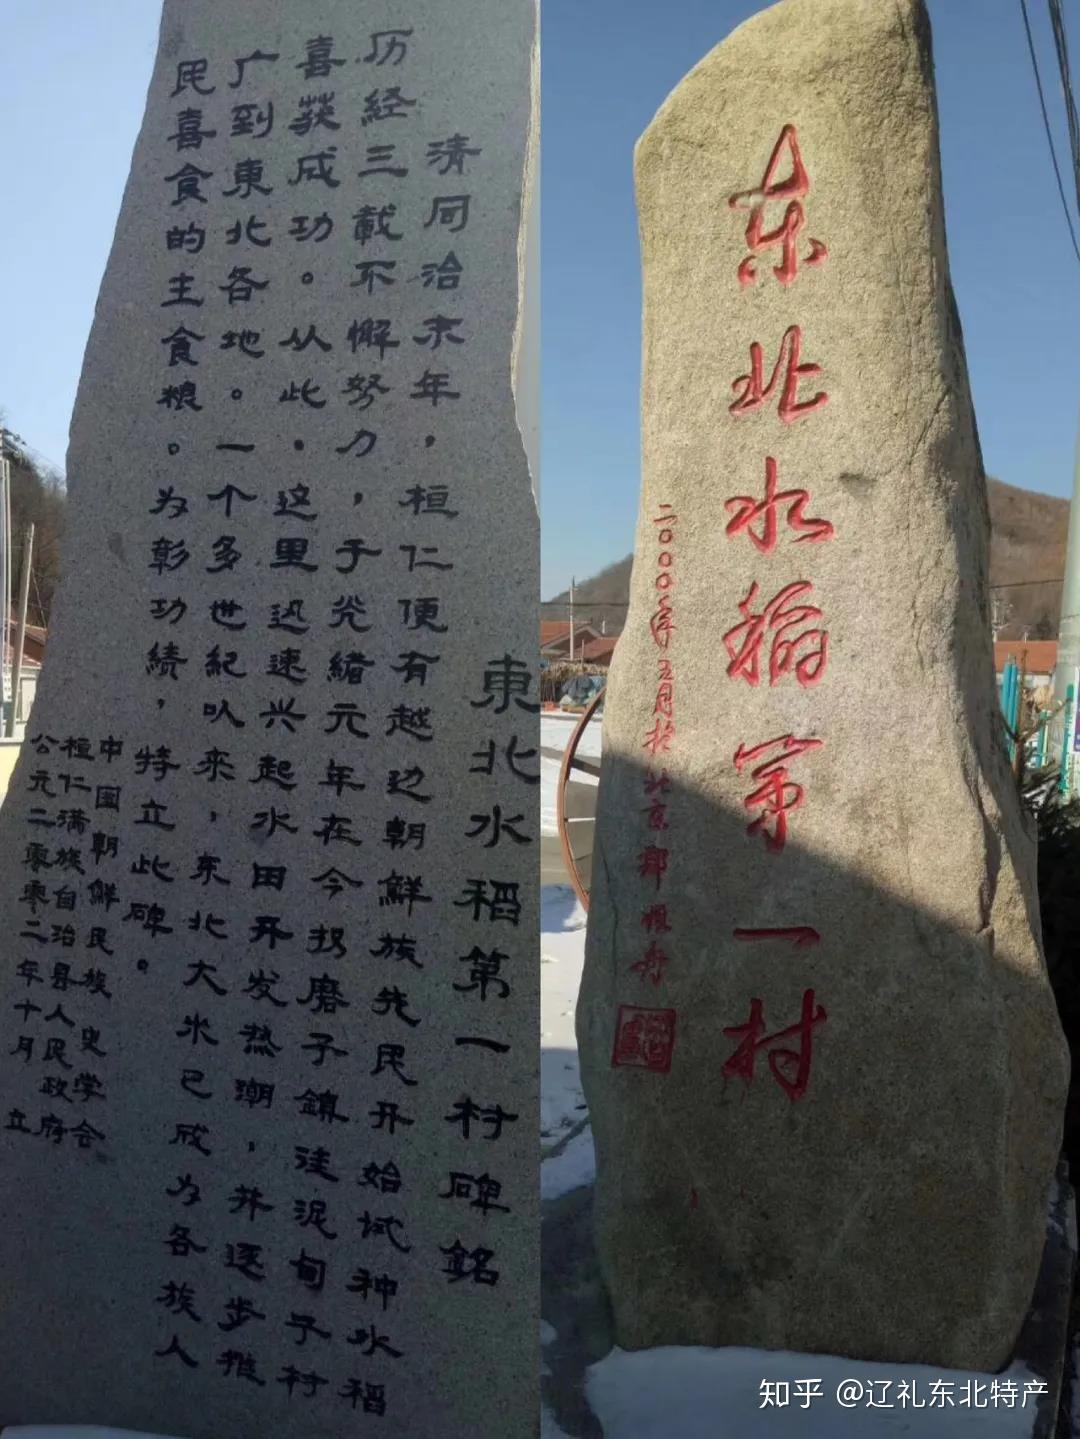 東北水稻第一村碑銘
清同治末年，桓仁便有越边朝鮮族先民开始试种水稻
历经三載不懈努力，于光緒元年在今拐磨子鎮洼泥甸子村
喜获成功。从此，这里迅速兴起水田开发热潮，并逐步推
广到東北各地。一个多世紀以来，东北大米已成为各族人
民喜食的主食粮。为彰功績，特立此碑。
中国朝鮮民族史学会
桓仁满族自治县人民政府
公元二零零二年十月 立
东北水稻第一村
二000年五月於北京郑舟
知乎 @辽礼东北特产